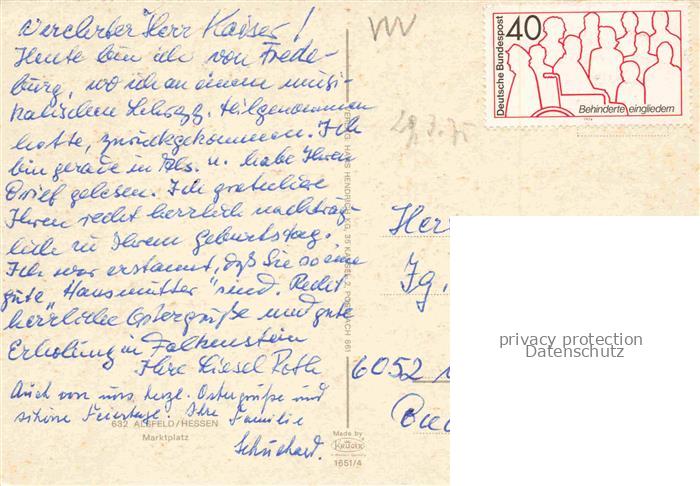 Verehrter Herr Kaiser!
Heute bin ich von Frede-
burg, wo ich an einem musi-
kalischen Lehrgg. teilgenommen
hatte, zurückgekommen. Ich
bin gerade in Als. u. habe Ihren
Brief gelesen. Ich gratuliere
Ihnen recht herzlich nachträg-
lich zu Ihrem Geburtstag.
Ich war erstaunt, daß Sie so eine
gute "Hausmutter" sind. Recht
herzliche Ostergrüße und gute
Erholung in Falkenstein
Ihre Liesel Roth
Auch von uns herzl. Ostergrüße und
schöne Feiertage. Ihre Familie
Schuchard.
632 ALSFELD/HESSEN
Marktplatz
VERLAG HANS HENDRICH KG, 35 KASSEL 2, POSTFACH 661
Made by
KRÜGER
1651/4
29.3.75
Deutsche Bundespost
40
Behinderte eingliedern
1974
Herr
Jg.
6052
privacy protection
Datenschutz